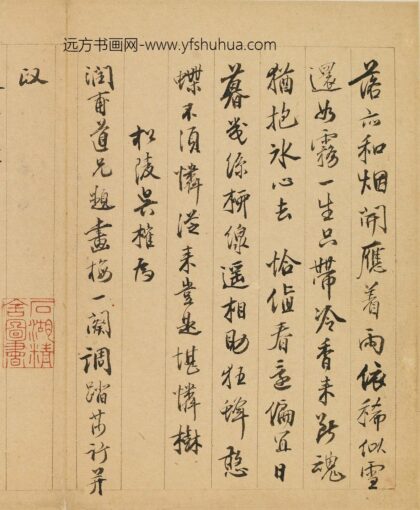 远方书画网-www.yfshuhua.com
落亦和烟開應着雨依稀似雪
還如霧一生只帶冷香來斷魂
猶抱冰心去 恰看偏宜日
暮幾絲柳線遥相助狂蜂憨
蝶不須憐從來豈是堪憐樹
松陵吳權為
潤甫道兄題畫梅一闋調踏莎行并
政
石湖精舍圖書